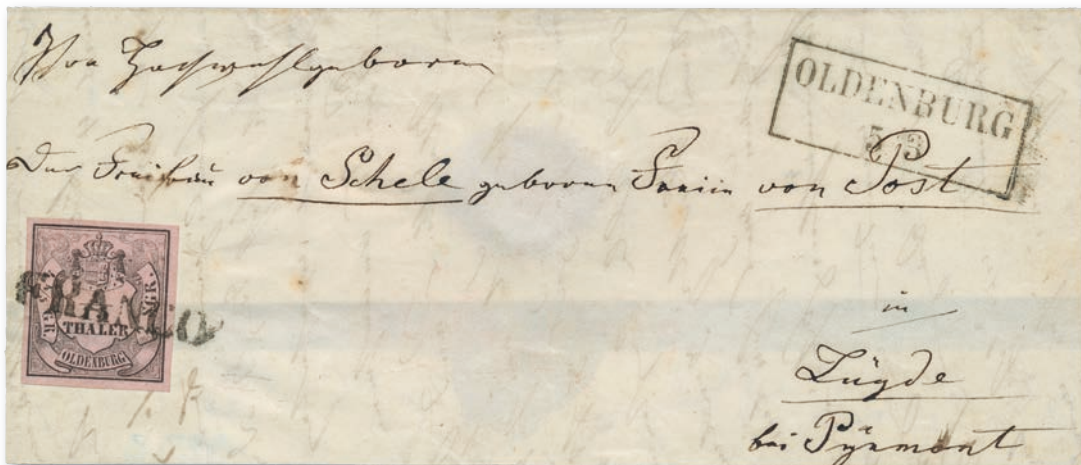 Hochwohlgeboren
OLDENBURG
5/3
Der Freifrau von Schele geboren Freiin von Post
FRANCO
THALER
OLDENBURG
in
Lügde
bei Pyrmont